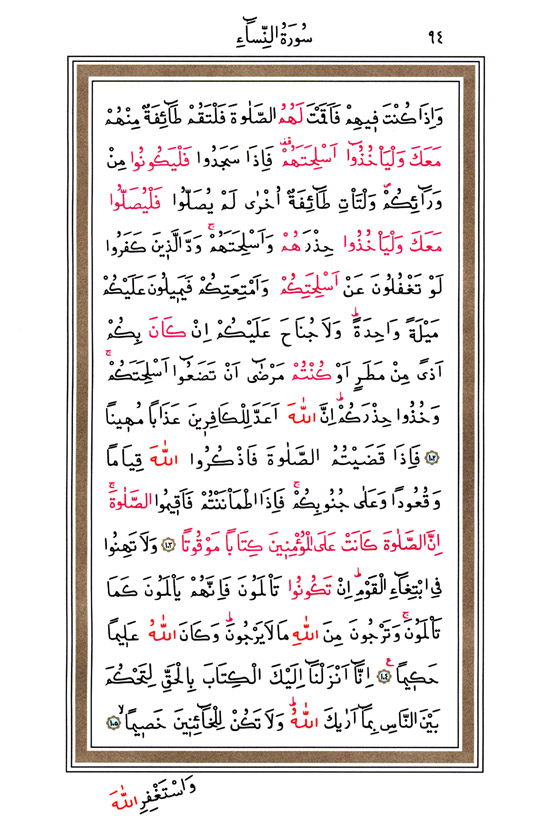 ٩٤ سُورَةُ النِّسَٓاءِ
وَاِذَا كُنْتَ ف۪يهِمْ فَاَقَمْتَ لَهُمُ الصَّلٰوةَ فَلْتَقُمْ طَٓائِفَةٌ مِنْهُمْ
مَعَكَ وَلْيَأْخُذُٓوا اَسْلِحَتَهُمْ۠ فَاِذَا سَجَدُوا فَلْيَكُونُوا مِنْ
وَرَٓائِكُمْۖ وَلْتَأْتِ طَٓائِفَةٌ اُخْرٰى لَمْ يُصَلُّوا فَلْيُصَلُّوا
مَعَكَ وَلْيَأْخُذُوا حِذْرَهُمْ وَاَسْلِحَتَهُمْۚ وَدَّ الَّذ۪ينَ كَفَرُوا
لَوْ تَغْفُلُونَ عَنْ اَسْلِحَتِكُمْ وَاَمْتِعَتِكُمْ فَيَم۪يلُونَ عَلَيْكُمْ
مَيْلَةً وَاحِدَةًۜ وَلَا جُنَاحَ عَلَيْكُمْ اِنْ كَانَ بِكُمْ
اَذًى مِنْ مَطَرٍ اَوْ كُنْتُمْ مَرْضٰٓى اَنْ تَضَعُٓوا اَسْلِحَتَكُمْۚ
وَخُذُوا حِذْرَكُمْۜ اِنَّ اللّٰهَ اَعَدَّ لِلْكَافِر۪ينَ عَذَابًا مُه۪ينًا
﴿١٠٢﴾ فَاِذَا قَضَيْتُمُ الصَّلٰوةَ فَاذْكُرُوا اللّٰهَ قِيَامًا
وَقُعُودًا وَعَلٰى جُنُوبِكُمْۚ فَاِذَا اطْمَأْنَنْتُمْ فَاَق۪يمُوا الصَّلٰوةَۚ
اِنَّ الصَّلٰوةَ كَانَتْ عَلَى الْمُؤْمِن۪ينَ كِتَابًا مَوْقُوتًا ﴿١٠٣﴾ وَلَا تَهِنُوا
فِي ابْتِغَٓاءِ الْقَوْمِۜ اِنْ تَكُونُوا تَأْلَمُونَ فَاِنَّهُمْ يَأْلَمُونَ كَمَا
تَأْلَمُونَۚ وَتَرْجُونَ مِنَ اللّٰهِ مَا لَا يَرْجُونَۜ وَكَانَ اللّٰهُ عَل۪يمًا
حَك۪يمًا۟ ﴿١٠٤﴾ اِنَّٓا اَنْزَلْنَٓا اِلَيْكَ الْكِتَابَ بِالْحَقِّ لِتَحْكُمَ
بَيْنَ النَّاسِ بِمَٓا اَرٰيكَ اللّٰهُۜ وَلَا تَكُنْ لِلْخَٓائِن۪ينَ خَص۪يمًاۙ ﴿١٠٥﴾
وَاسْتَغْفِرِ اللّٰهَ